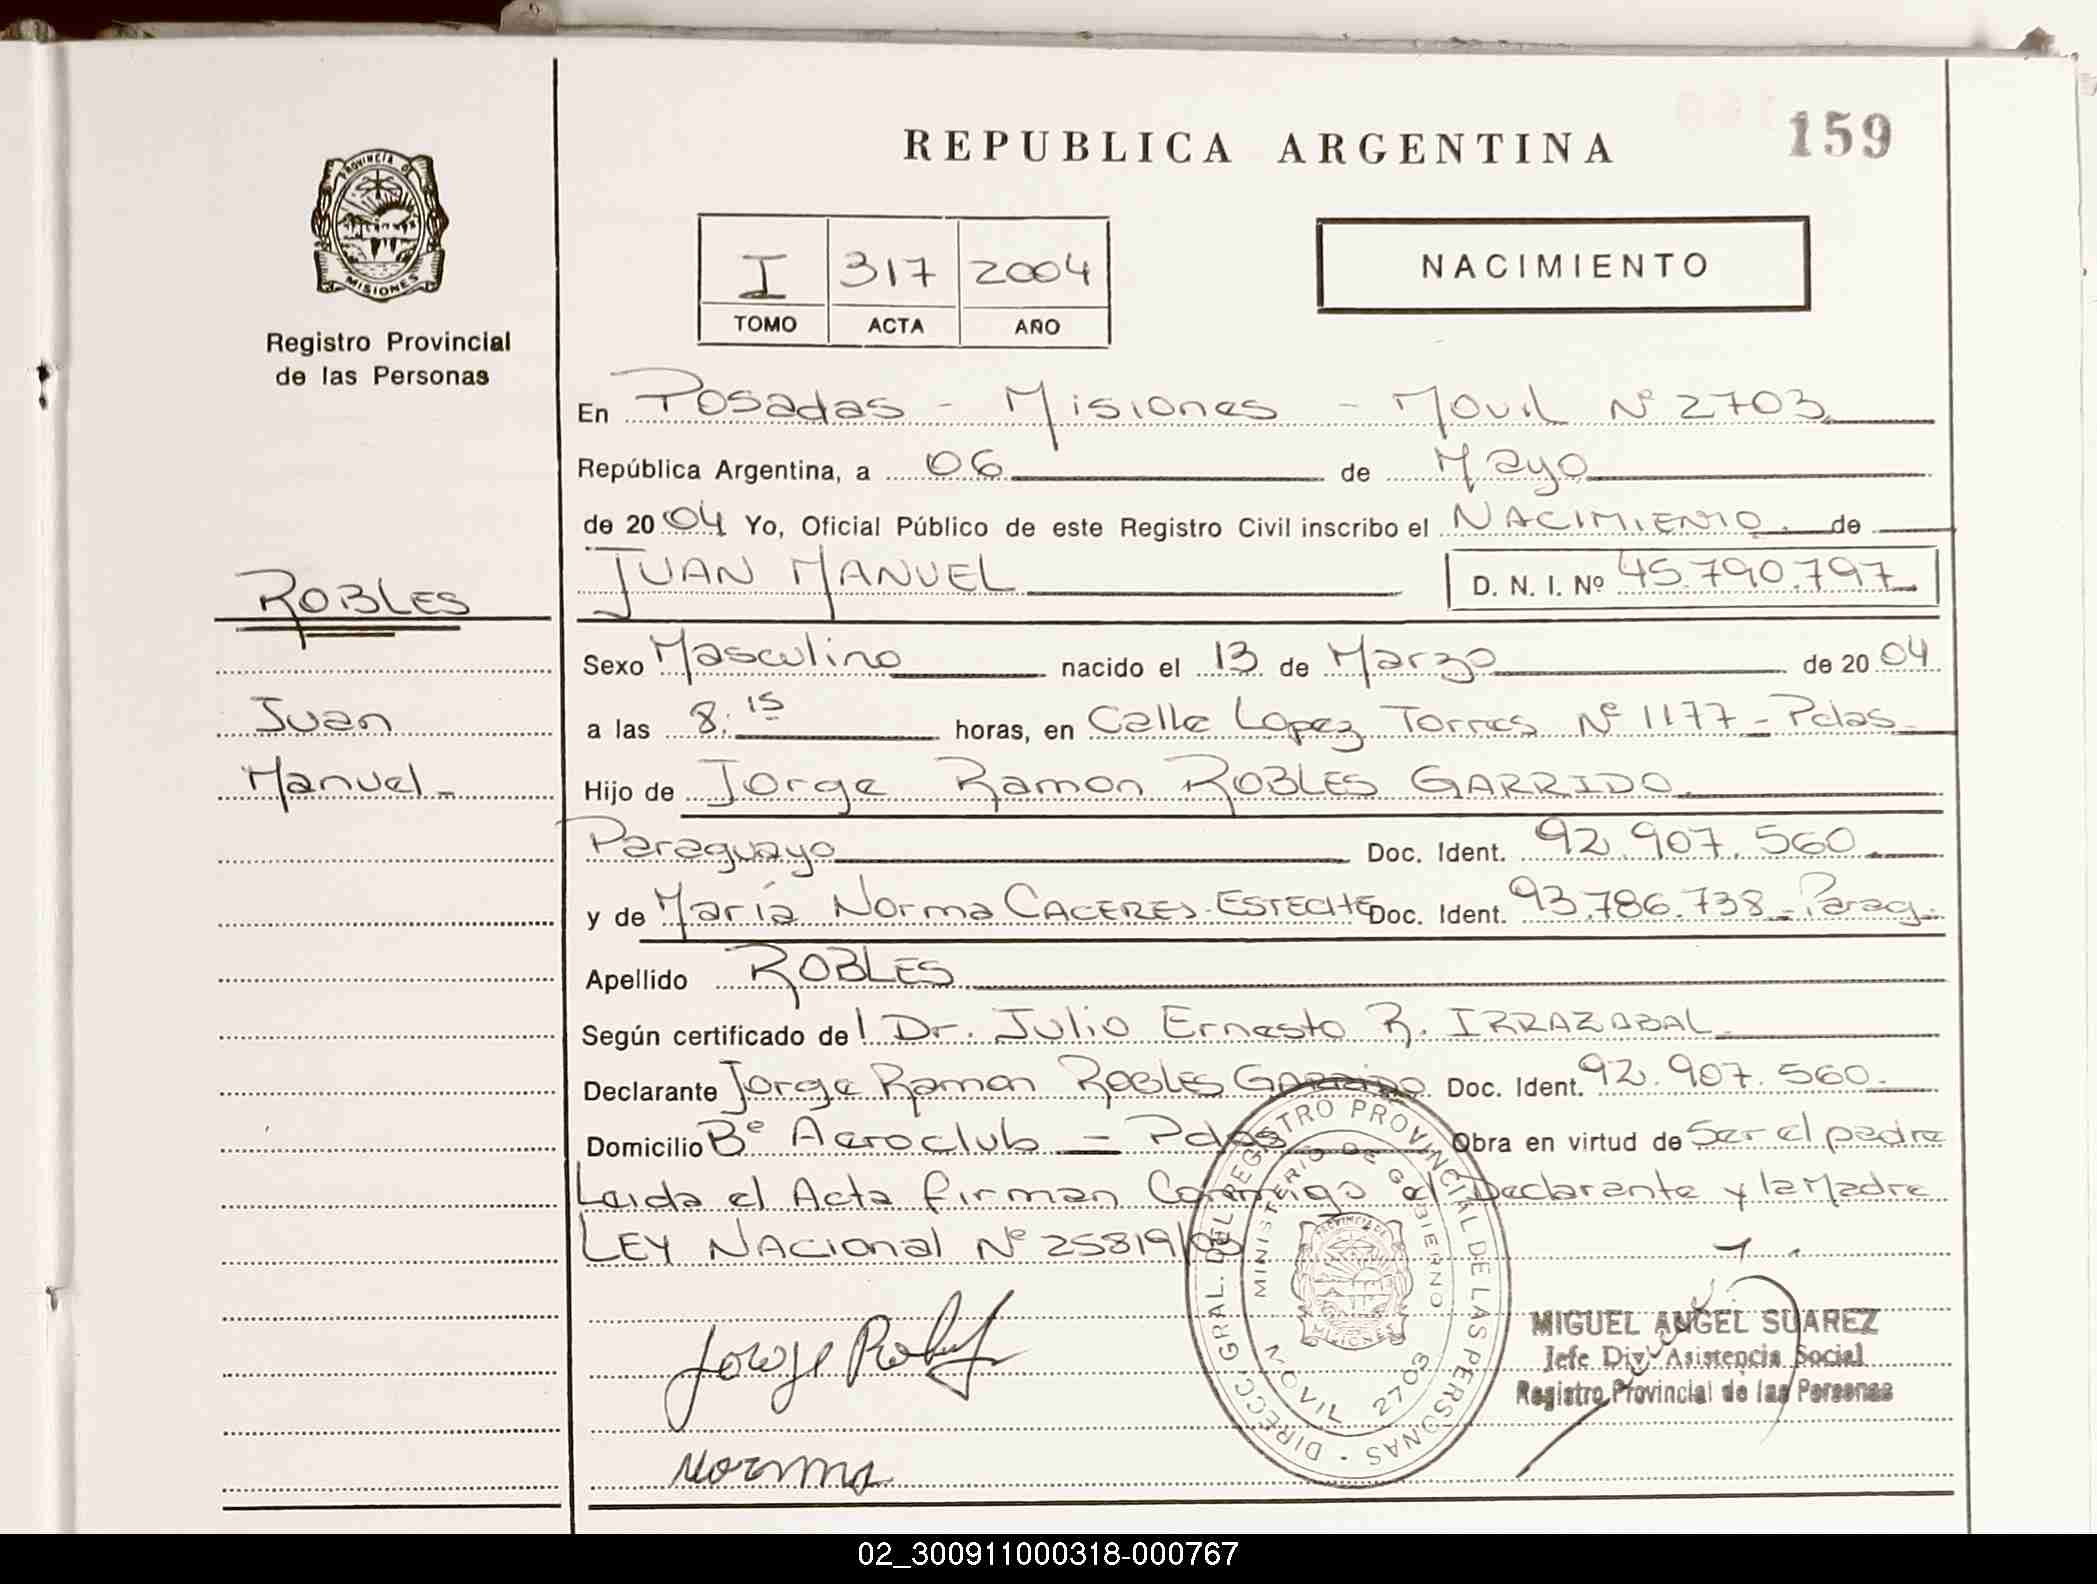 REPUBLICA ARGENTINA
159
PROVINCIA DE
MISIONES
Registro Provincial
de las Personas
I 317 2004
TOMO ACTA AÑO
NACIMIENTO
En Posadas - Misiones - Movil Nº 2703
República Argentina, a 06 de Mayo
de 2004 Yo, Oficial Público de este Registro Civil inscribo el NACIMIENTO. de
JUAN MANUEL D. N. I. Nº 45.790.797
ROBLES
Juan
Manuel-
Sexo Masculino nacido el 13 de Marzo de 2004
a las 8:15 horas, en Calle Lopez Torres Nº 1177 - Pdas
Hijo de Jorge Ramon ROBLES GARRIDO
Paraguayo Doc. Ident. 92.907.560
y de María Norma CACERES-ESTECHE Doc. Ident. 93.786.738 - Parag.
Apellido ROBLES
Según certificado del Dr. Julio Ernesto R. IRRAZABAL
Declarante Jorge Ramon ROBLES GARRIDO Doc. Ident. 92.907.560.
Domicilio Bº Aeroclub - Pdas Obra en virtud de Ser el padre
Leida el Acta firman Conmigo el Declarante y la Madre
LEY NACional Nº 25819/03
DIRECC. GRAL. DEL REGISTRO PROVINCIAL DE LAS PERSONAS
MINISTERIO DE GOBIERNO
MOVIL 2703
Jorge Robles
Norma
MIGUEL ANGEL SUAREZ
Jefe Div. Asistencia Social
Registro Provincial de las Personas
02_300911000318-000767